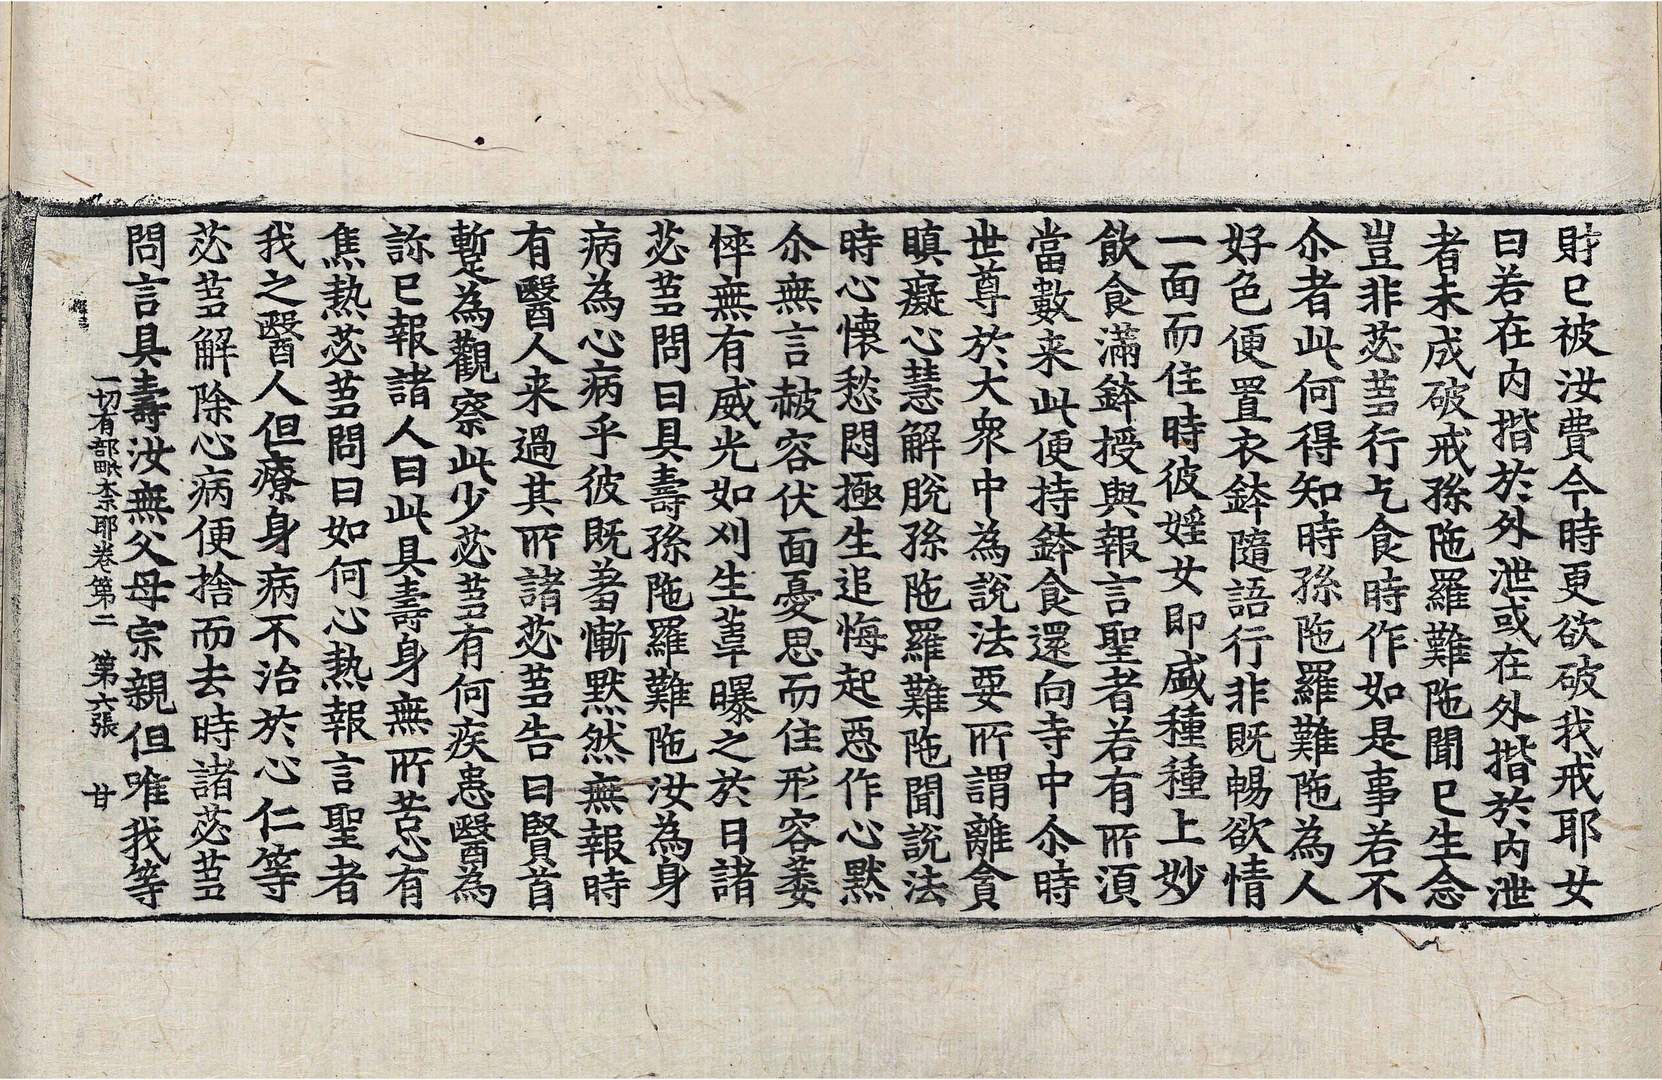 財已被汝費今時更欲破我戒耶女
曰若在內揩於外泄或在外揩於內泄
者未成破戒孫陁羅難陁聞已生念
豈非苾蒭行乞食時作如是事若不
尒者此何得知時孫陁羅難陁為人
好色便置衣鉢隨語行非既暢欲情
一面而住時彼婬女即盛種種上妙
飲食滿鉢授與報言聖者若有所湏
當數来此便持鉢食還向寺中尒時
世尊於大衆中為說法要所謂離貪
瞋癡心慧解脫孫陁羅難陁聞說法
時心懷愁悶極生追悔起惡作心默
尒無言赧容伏面憂思而住形容萎
悴無有威光如刈生葦曝之於日諸
苾蒭問曰具壽孫陁羅難陁汝為身
病為心病乎彼既羞慚默然無報時
有醫人来過其所諸苾蒭告曰賢首
暫為觀察此少苾蒭有何疾患醫為
診已報諸人曰此具壽身無所苦忽有
焦熱苾蒭問曰如何心熱報言聖者
我之醫人但療身病不治於心仁等
苾蒭解除心病便捨而去時諸苾蒭
問言具壽汝無父母宗親但唯我等
一切有部毗奈耶卷第二　第六張　甘